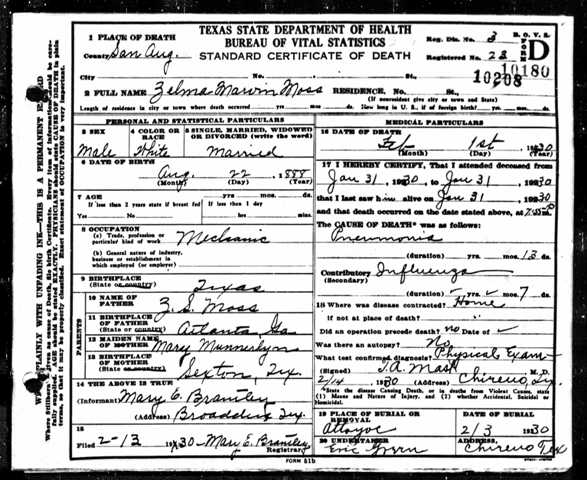 TEXAS STATE DEPARTMENT OF HEALTH
BUREAU OF VITAL STATISTICS
STANDARD CERTIFICATE OF DEATH
Reg. Dis. No. 3 B. O. V. S.
Registered No. 28 FORM D
10180
10208
1 PLACE OF DEATH
County San Aug.
City No. St.
2 FULL NAME Zelma Marvin Moss RESIDENCE. No. St.
(If nonresident give city or town and State)
Length of residence in city or town where death occurred yrs. mos. ds. How long in U. S., if of foreign birth? yrs. mos. ds.
PERSONAL AND STATISTICAL PARTICULARS
3 SEX
Male
4 COLOR OR RACE
White
5 SINGLE, MARRIED, WIDOWED OR DIVORCED (write the word)
Married
6 DATE OF BIRTH
Aug. 22, 1888
(Month) (Day) (Year)
7 AGE yrs. mos. ds.
If less than 2 years state if breast fed If less than 1 day
Yes No hrs. min.
8 OCCUPATION
(a) Trade, profession or particular kind of work Mechanic
(b) General nature of industry, business or establishment in which employed (or employer)
9 BIRTHPLACE
(State or country) Texas
PARENTS
10 NAME OF FATHER Z. S. Moss
11 BIRTHPLACE OF FATHER
(State or country) Atlanta, Ga
12 MAIDEN NAME OF MOTHER Mary Munnerlyn
13 BIRTHPLACE OF MOTHER
(State or country) Sexton, Tex.
14 THE ABOVE IS TRUE
(Informant) Mary E. Brantley
(Address) Broaddus Tex.
15
Filed 2-13 1930 Mary E. Brantley
Registrar
MEDICAL PARTICULARS
16 DATE OF DEATH
Feb 1st, 1930
(Month) (Day) (Year)
17 I HEREBY CERTIFY, That I attended deceased from
Jan 31, 1930, to Jan 31, 1930
that I last saw him alive on Jan 31, 1930
and that death occurred on the date stated above, at
The CAUSE OF DEATH* was as follows:
Pneumonia
(duration) yrs. mos. 13 ds.
Contributory Influenza
(Secondary)
(duration) yrs. mos. 7 ds.
18 Where was disease contracted? Home
if not at place of death?
Did an operation precede death? no Date of
Was there an autopsy? No
What test confirmed diagnosis? Physical Exam
(Signed) T. A. Mast M. D.
2/14 1930 (Address) Chireno, Tex
*State the disease Causing Death, or in deaths from Violent Causes, state (1) Means and Nature of Injury, and (2) whether Accidental, Suicidal or Homicidal.
19 PLACE OF BURIAL OR REMOVAL
Attoyac
DATE OF BURIAL
2/3 1930
20 UNDERTAKER
Eric Green
ADDRESS,
Chireno Tex
FORM 51b